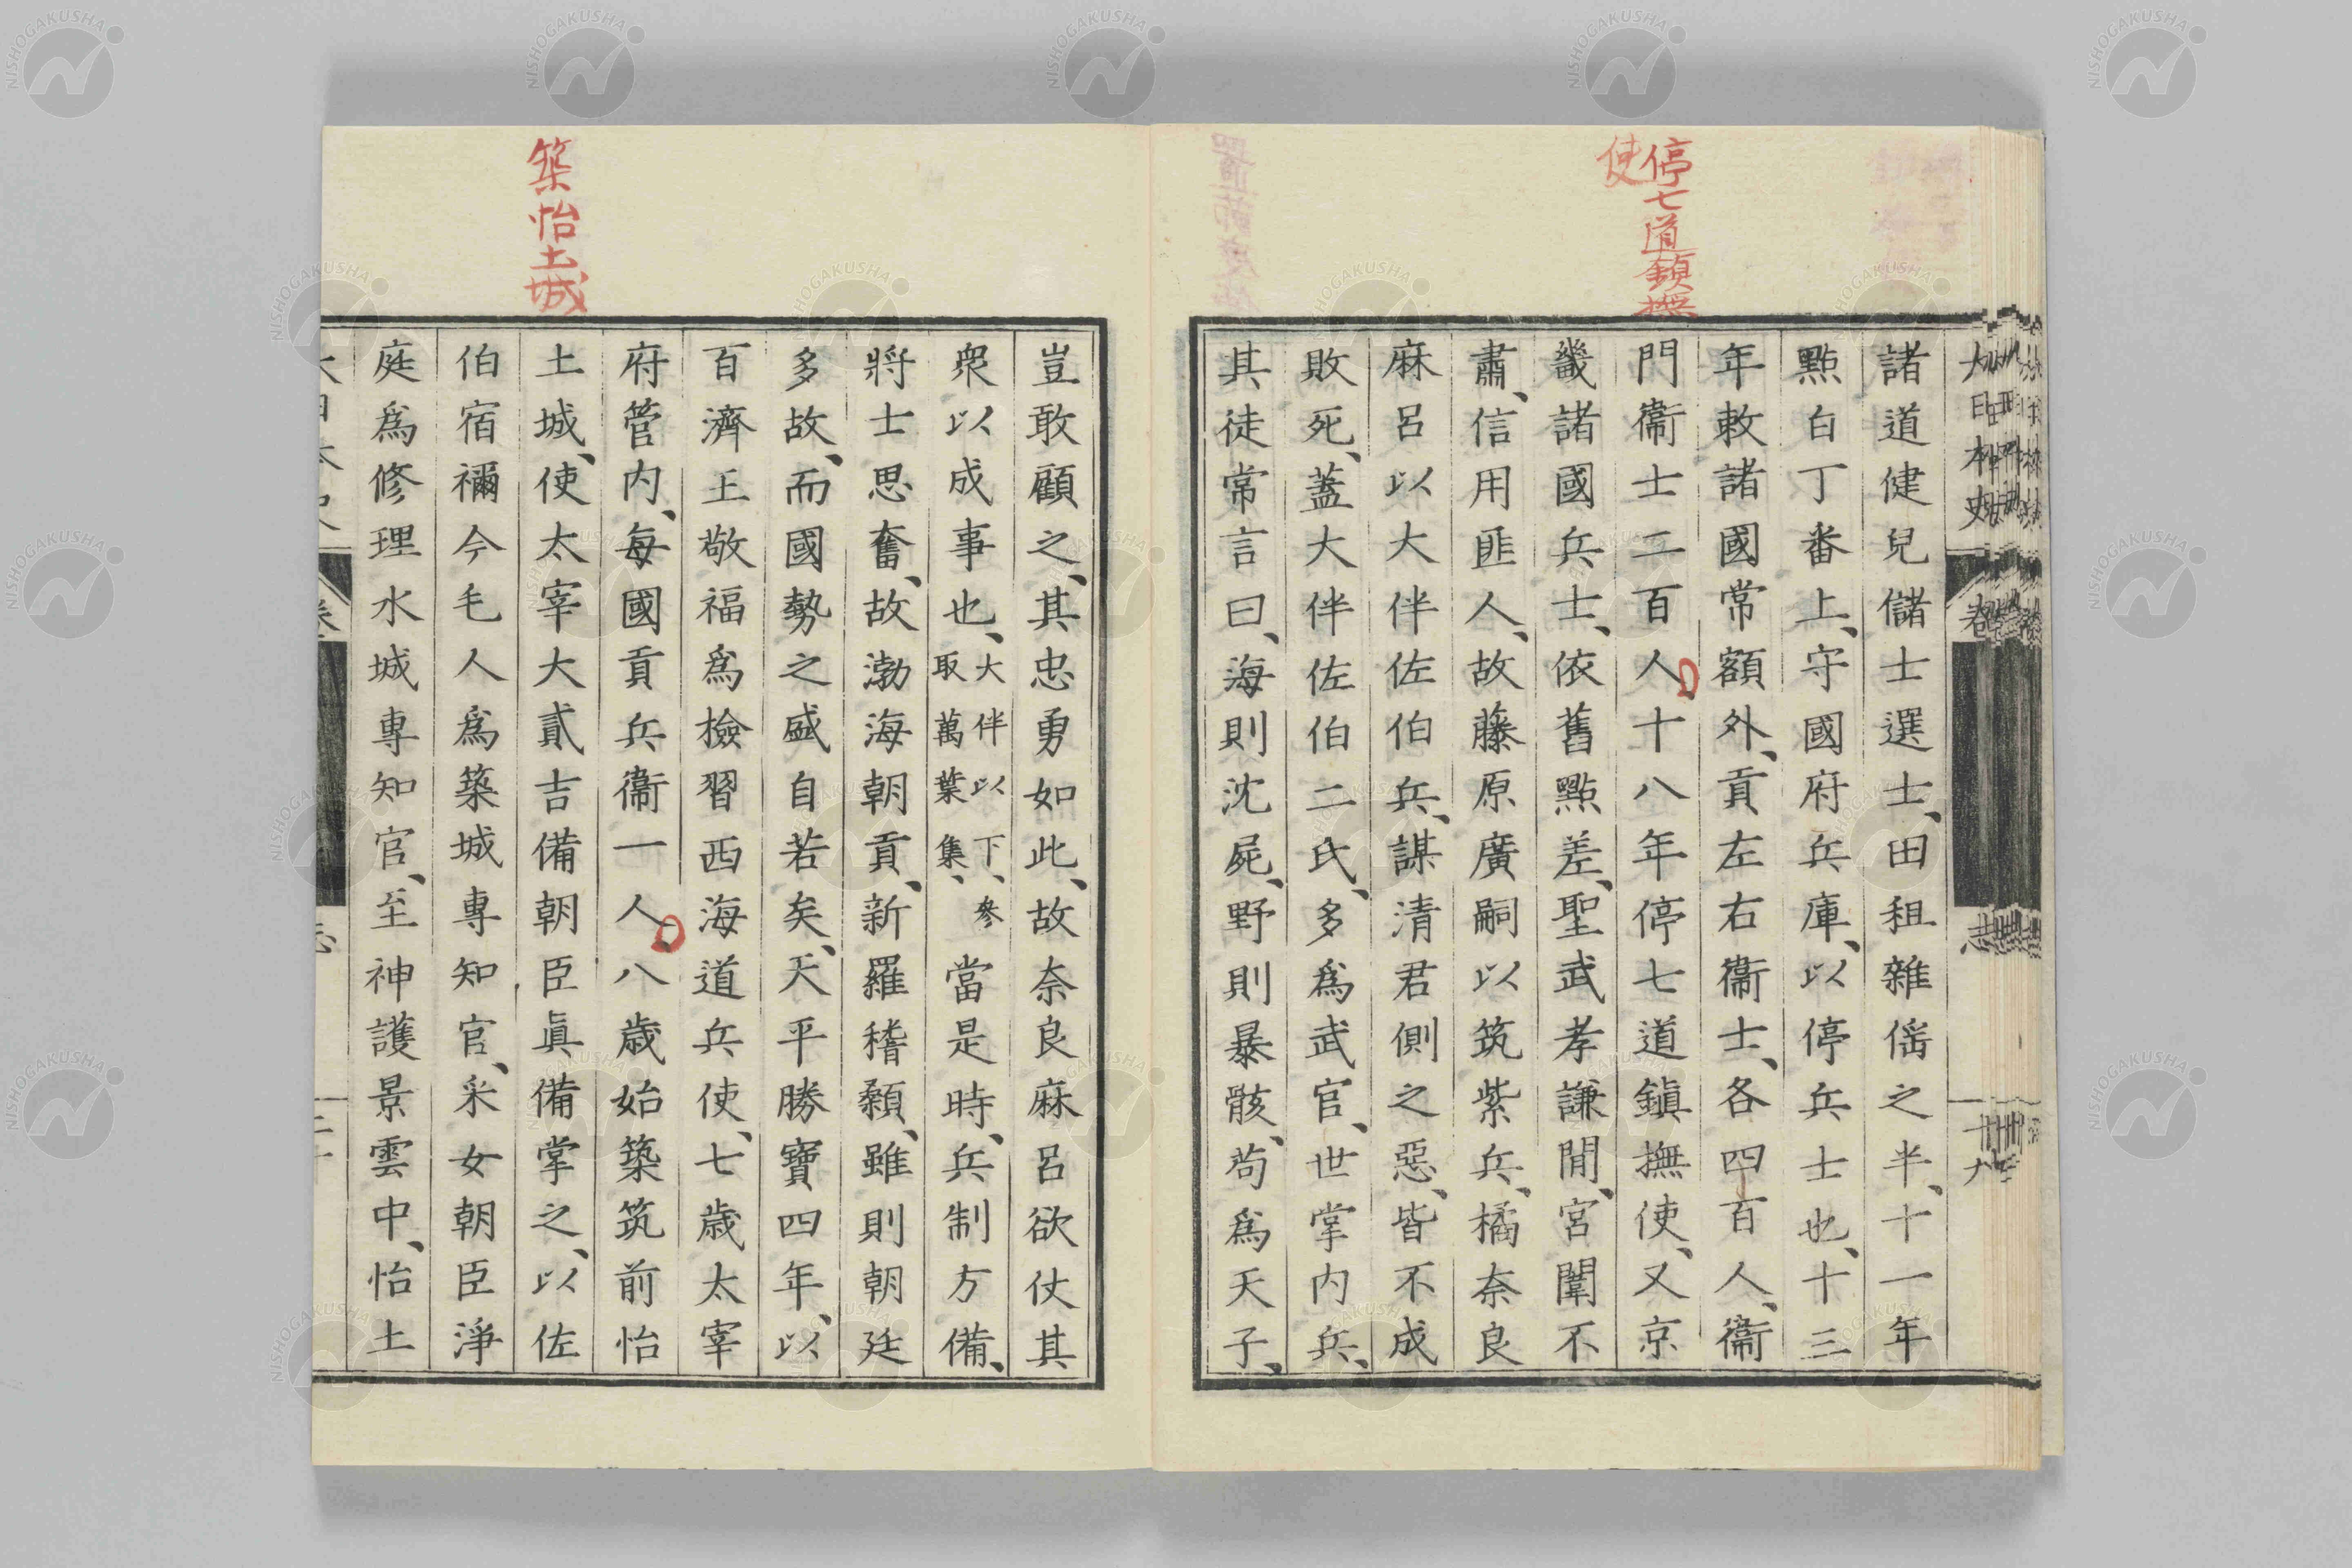 停七道鎮撫
使
大日本史
卷
志
十九
諸道健兒儲士選士、田租雜徭之半、十一年
點白丁番上、守國府兵庫、以停兵士也、十三
年敕諸國常額外、貢左右衞士、各四百人、衞
門衞士二百人、十八年停七道鎭撫使、又京
畿諸國兵士、依舊點差、聖武孝謙閒、宮闈不
肅、信用匪人、故藤原廣嗣以筑紫兵、橘奈良
麻呂以大伴佐伯兵、謀清君側之惡、皆不成
敗死、蓋大伴佐伯二氏、多爲武官、世掌内兵、
其徒常言曰、海則沈屍、野則暴骸、苟爲天子、
築怡土城
豈敢顧之、其忠勇如此、故奈良麻呂欲仗其
衆以成事也、大伴以下、參取萬葉集、當是時、兵制方備、
將士思奮、故渤海朝貢、新羅稽顙、雖則朝廷
多故、而國勢之盛自若矣、天平勝寶四年、以
百濟王敬福爲檢習西海道兵使、七歲太宰
府管内、每國貢兵衞一人、八歲始築筑前怡
土城、使太宰大貳吉備朝臣眞備掌之、以佐
伯宿禰今毛人爲築城專知官、采女朝臣淨
庭爲修理水城專知官、至神護景雲中、怡土
NISHOGAKUSHA